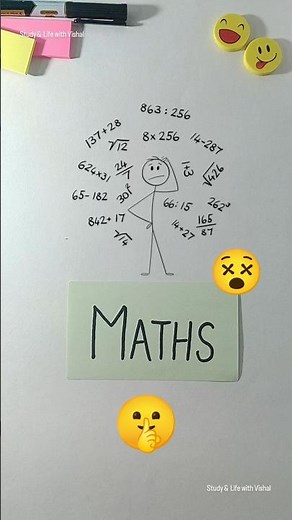 Study & Life with Vishal
863 : 256
137 + 28
8 x 256
14 - 287
√12
624 x 31
24/7
1 + 3
√426
65 - 182
301²
66 : 15
262³
842 + 17
165/87
√4
14 + 27
MATHS
Study & Life with Vishal